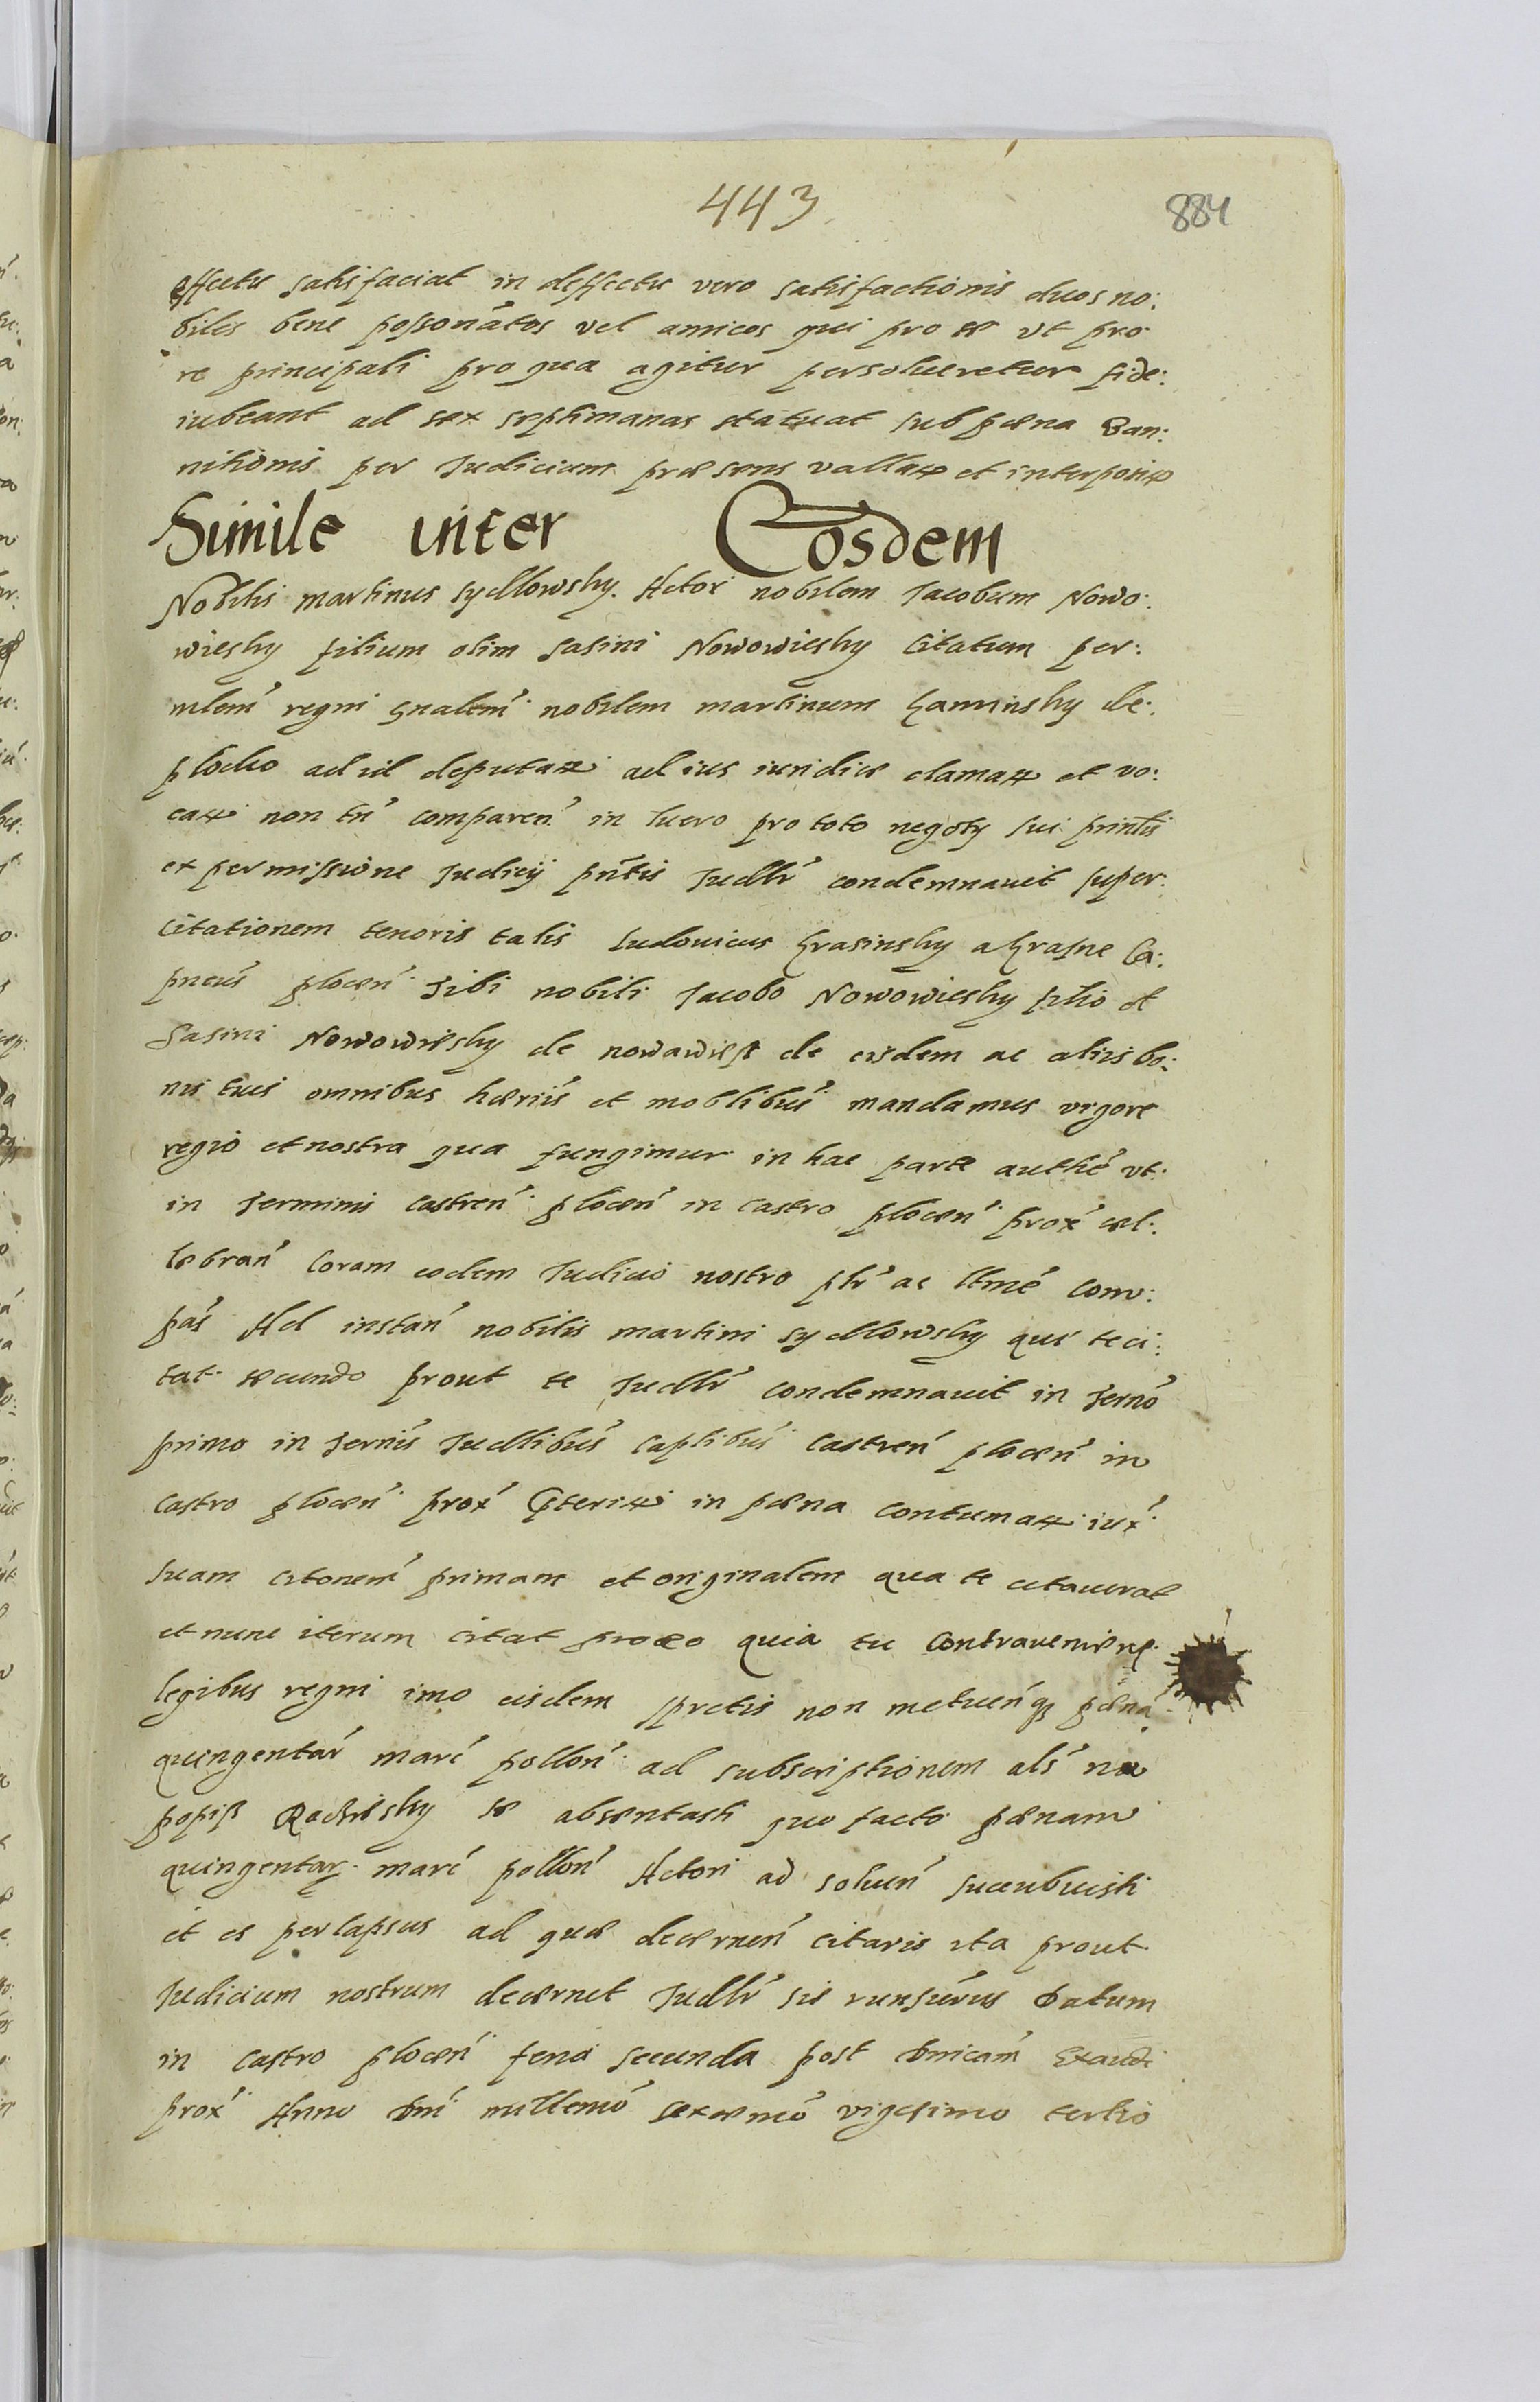 443
884
effectu satisfaciat in deffectu vero satisfactionis duos no:
biles bene possonatos vel amicos qui pro se ut pro
re principali pro qua agitur persolueretur fide:
iubeant ad sex septimanas statuat sub pæna Ban:
nitionis per Judicium præsens valla et interposi
Simile inter Eosdem
Nobilis Martinus Sydlowsky Actor nobilem Jacobum Nowo:
wiesky filium olim Sasini Nowowiesky Citatum per:
mlem̃ regni gñalem̃ nobilem Martinum Kaminsky de
Plocko ad id deputa ad ius iuridice clama et vo:
ca non tñ comparen̄ in lucro pro toto negoty sui prinlis
ex permissione Judicij pñtis Judlr̃ condemnauit super
Citationem tenoris talis Ludouicus Krasinsky a Krasne Ca:
pneus plocen̄ Tibi nobili Jacobo Nowowiesky filio ol
Sasini Nowowiesky de nowawiess de eisdem ac aliis bo:
nis tuis omnibus hærijs et moblibus mandamus vigore
regio et nostra qua fungimur in hac parte authe ut
in Terminis castren̄ plocen̄ in Castro plocen̄ prox̃ cel:
lebran̄ Coram eodem Judicio nostro plr̃ ac ltme Com:
pas Ad instan̄ nobilis Martini Sydlowsky qui te ci:
tat secundo prout te Judlr̃ condemnauit in Terno
primo in Ternis Judlibus Caplibus Castren̄ plocen̄ in
Castro plocen̄ prox̃ pteri in pæna Contuma iux̃
suam citonem̃ primam et originalem qua te citauerat
et nunc iterum Citat pro eo quia tu Contraueniens
legibus regni imo eisdem spretis non metuen̄q pæna
quingentar̃ marc̃ pollon̄ ad subscriptionem als na
popis Radziesky se absentasti quo facto pænam
quingentar marc̃ pollon̄ Actori ad soluen̄ sucubuisti
et es perlapsus ad quæ decernen̄ Citaris ita prout
Judicium nostrum decernet Judlr̃ sis runsurus Datum
in Castro plocen̄ feria secunda post dnicam̃ Exaudi
prox̃ Anno dni millemo sexcemo vigesimo tertio